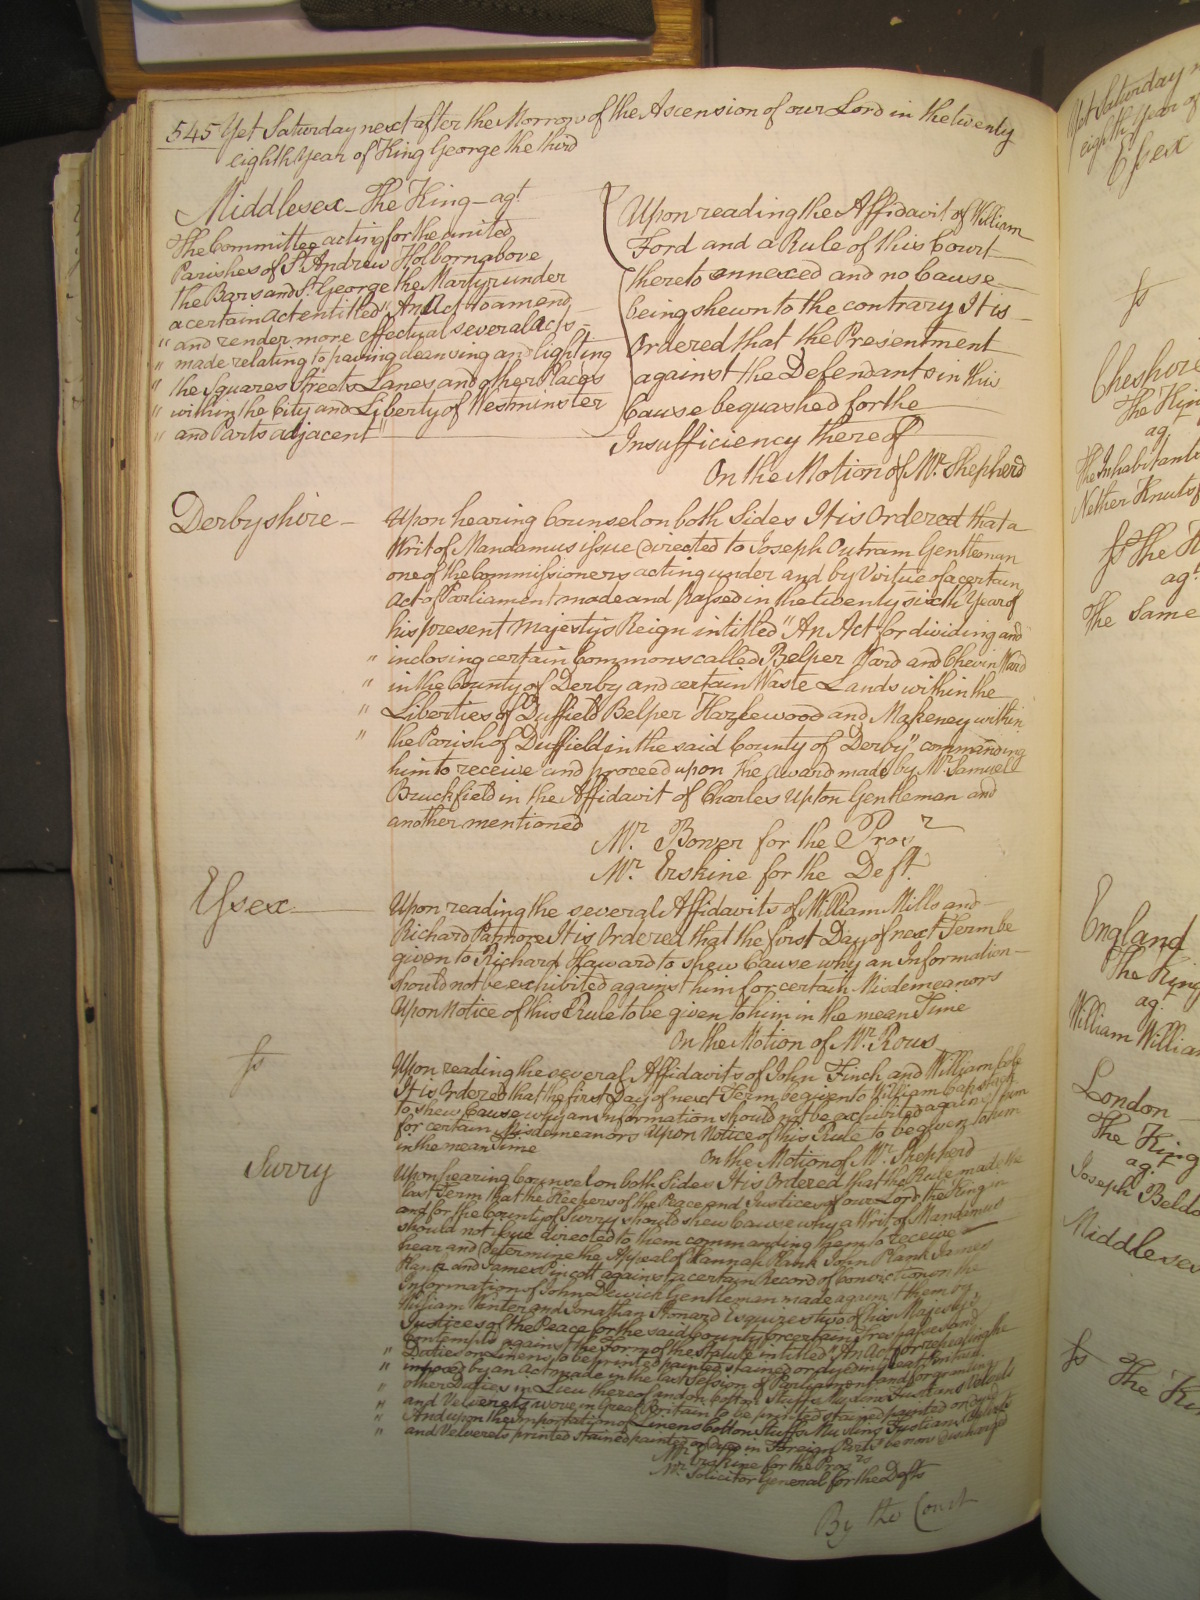 545 Yet Saturday next after the Morrow of the Ascension of our Lord in the twenty
eighth Year of King George the third
Middlesex - The King - agt
The Committee acting for the united
Parishes of St Andrew Holborn above
the Bars and St George the Martyr under
a certain Act entitled "An Act to amend
" and render more effectual several Acts -
" made relating to paving cleansing and lighting
" the Squares Streets Lanes and other Places
" within the City and Liberty of Westminster
" and Parts adjacent"
Upon reading the Affidavit of William
Ford and a Rule of this Court
thereto annexed and no Cause
being shewn to the contrary It is
Ordered that the Presentment
against the Defendants in this
Cause be quashed for the
Insufficiency thereof
On the Motion of Mr. Shepherd
Derbyshire - Upon hearing Counsel on both Sides It is Ordered that a
Writ of Mandamus issue directed to Joseph Outram Gentleman
one of the Commissioners acting under and by Virtue of a certain
Act of Parliament made and passed in the twenty sixth Year of
his present Majesty's Reign intitled "An Act for dividing and
" inclosing certain Commons called Belper Ward and Chevin Ward
" in the County of Derby and certain Waste Lands within the
" Liberties of Duffield Belper Hazlewood and Makeney within
" the Parish of Duffield in the said County of Derby" commanding
him to receive and proceed upon the award made by Mr. Samuel
Bruckfield in the Affidavit of Charles Upton Gentleman and
another mentioned
Mr. Bower for the Prosr
Mr. Erskine for the Deft.
Essex Upon reading the several Affidavits of William Mills and
Richard Patmore It is Ordered that the first Day of next Term be
given to Richard Haward to shew Cause why an Information
should not be exhibited against him for certain Misdemeanors
Upon Notice of this Rule to be given to him in the mean Time
On the Motion of Mr. Rous
Ss Upon reading the several Affidavits of John Finch and William Cole
It is Ordered that the first Day of next Term be given to William Capstack
to shew Cause why an Information should not be exhibited against him
for certain Misdemeanors Upon Notice of this Rule to be given to him
in the mean Time
On the Motion of Mr. Shepherd
Surry Upon hearing Counsel on both Sides It is Ordered that the Rule made the
last Term that the Keepers of the Peace and Justices of our Lord the King in
and for the County of Surry should shew Cause why a Writ of Mandamus
should not issue directed to them commanding them to receive
hear and determine the Appeal of Hannah Plank John Plank James
Plank and James Pincott against a certain Record of Conviction on the
Information of John Dewick Gentleman made against them by
William Winter and Jonathan Stonard Esquires two of his Majesty's
Justices of the Peace for the said County for certain Trespasses and
Contempts against the Form of the Statute intitled "An Act for repealing the
" Duties on Linens to be printed painted stained or dyed in Great Britain
" imposed by an Act made in the last Session of Parliament and for granting
" other Duties in Lieu thereof and on Cotton Stuffs Muslins Fustians Velvets
" and Velverets wove in Great Britain to be printed stained painted or dyed
" And upon the Importation of Linens Cotton Stuffs Muslins Fustians Velvets
" and Velverets printed stained painted or dyed in Foreign Parts" be now discharged
Mr. Erskine for the Prosrs
Mr. Solicitor General for the Defts
By the Court
Essex
Ss
Cheshire
The King
agt
The Inhabitants
Nether Knutsf
Ss The K
agt
The Same
England
The King
agt
William Willia
London
The King
agt
Joseph Beldo
Middlesex
Ss The Kin